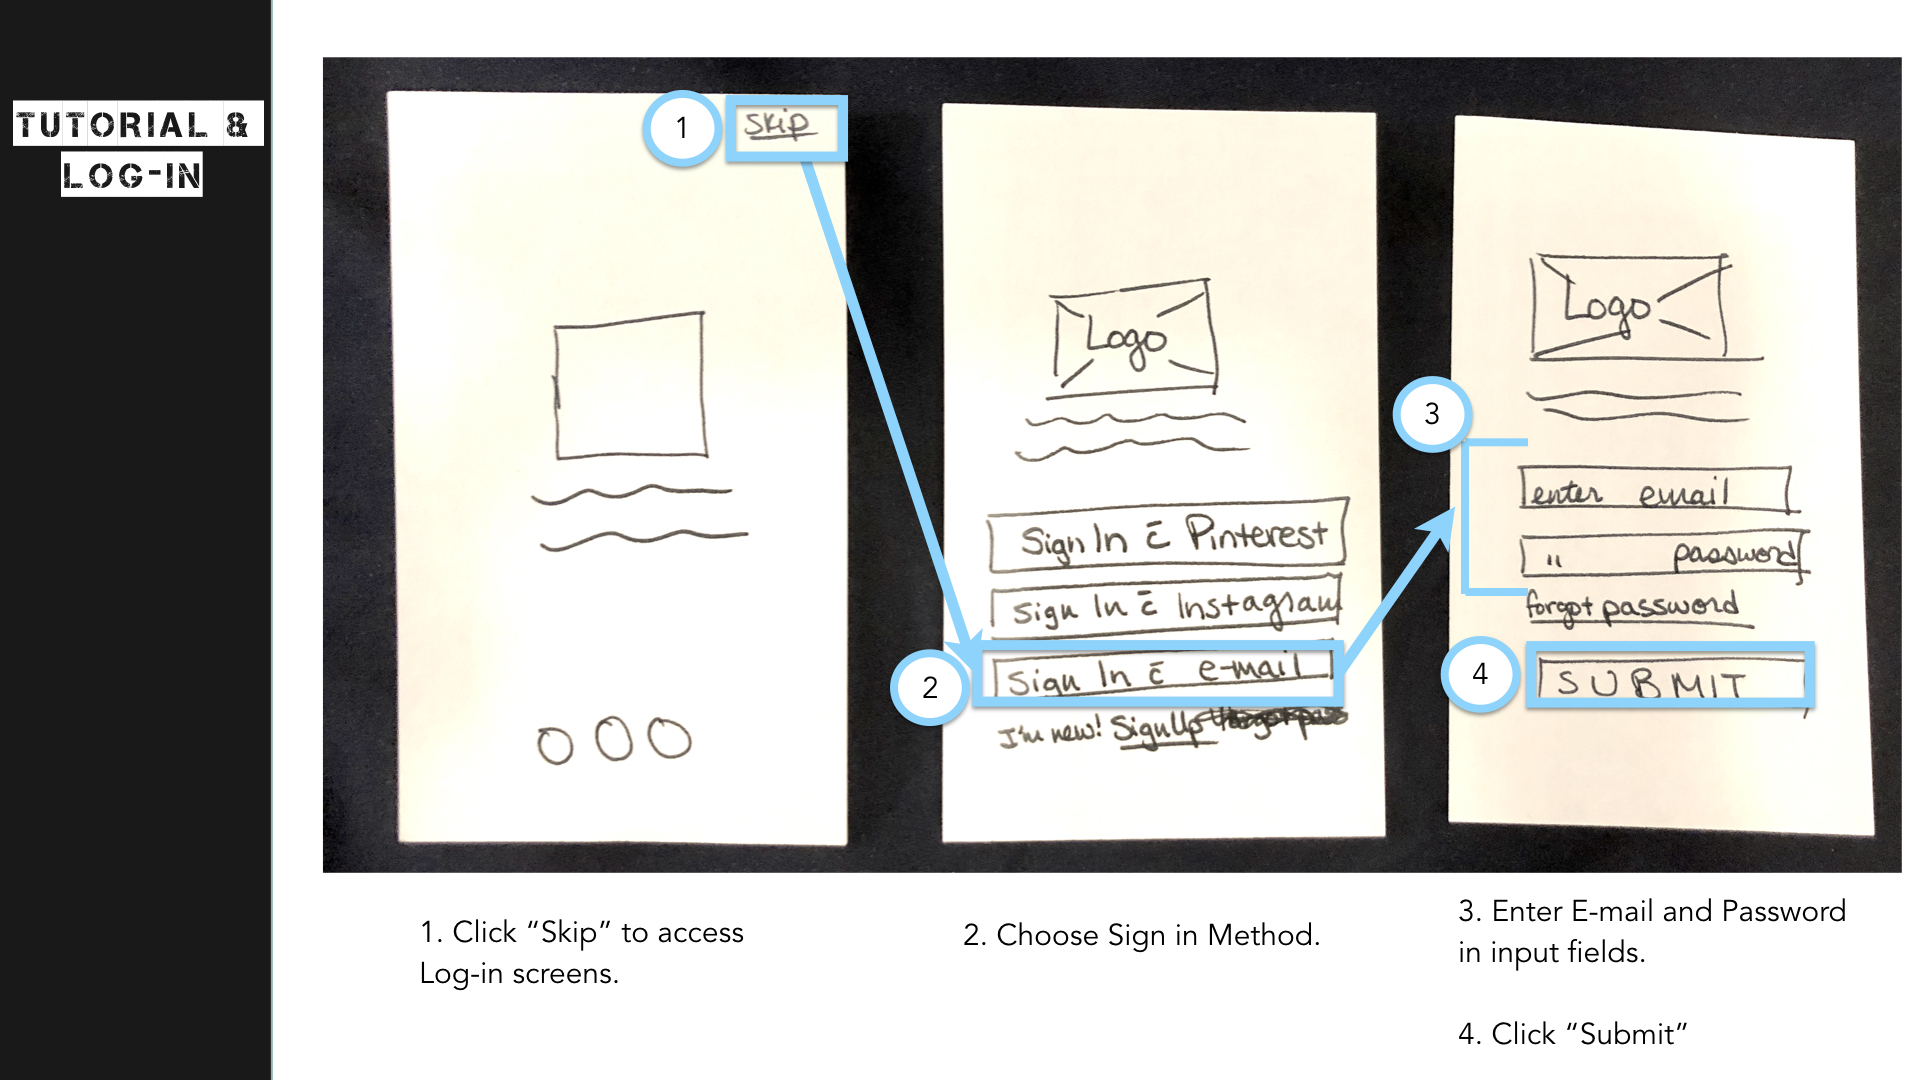 TUTORIAL &
LOG-IN
1
Skip
Logo
Sign In c̄ Pinterest
Sign In c̄ Instagram
2
Sign In c̄ e-mail
I'm new! Sign Up
Logo
3
enter email
" password
forgot password
4
SUBMIT
1. Click “Skip” to access
Log-in screens.
2. Choose Sign in Method.
3. Enter E-mail and Password
in input fields.
4. Click “Submit”